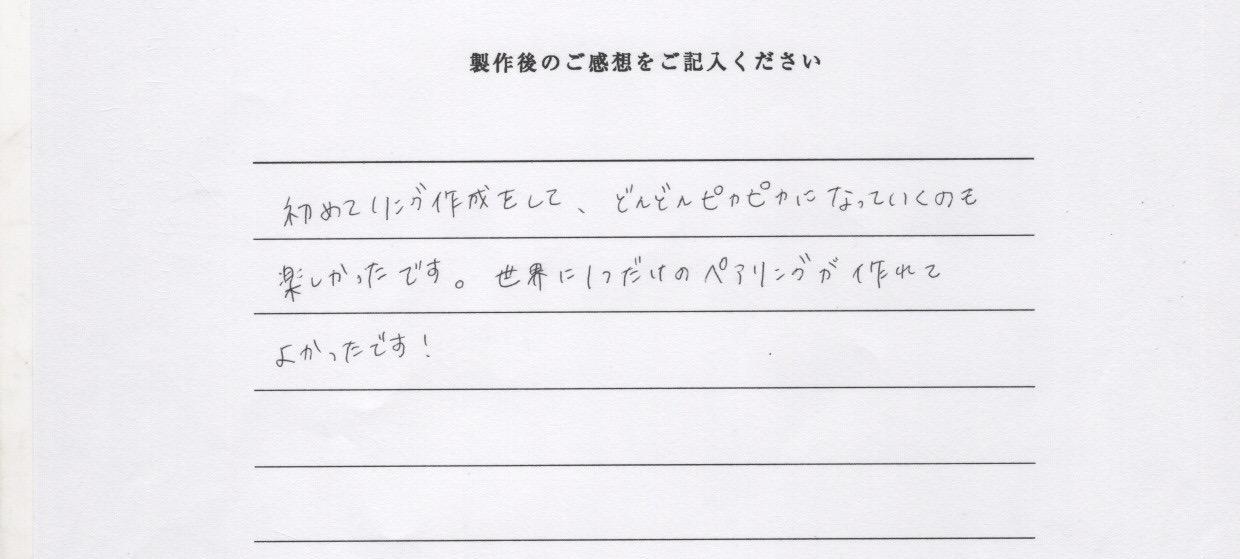 製作後のご感想をご記入ください
初めてリング作成をして、どんどんピカピカになっていくのも
楽しかったです。世界に1つだけのペアリングが作れて
よかったです!